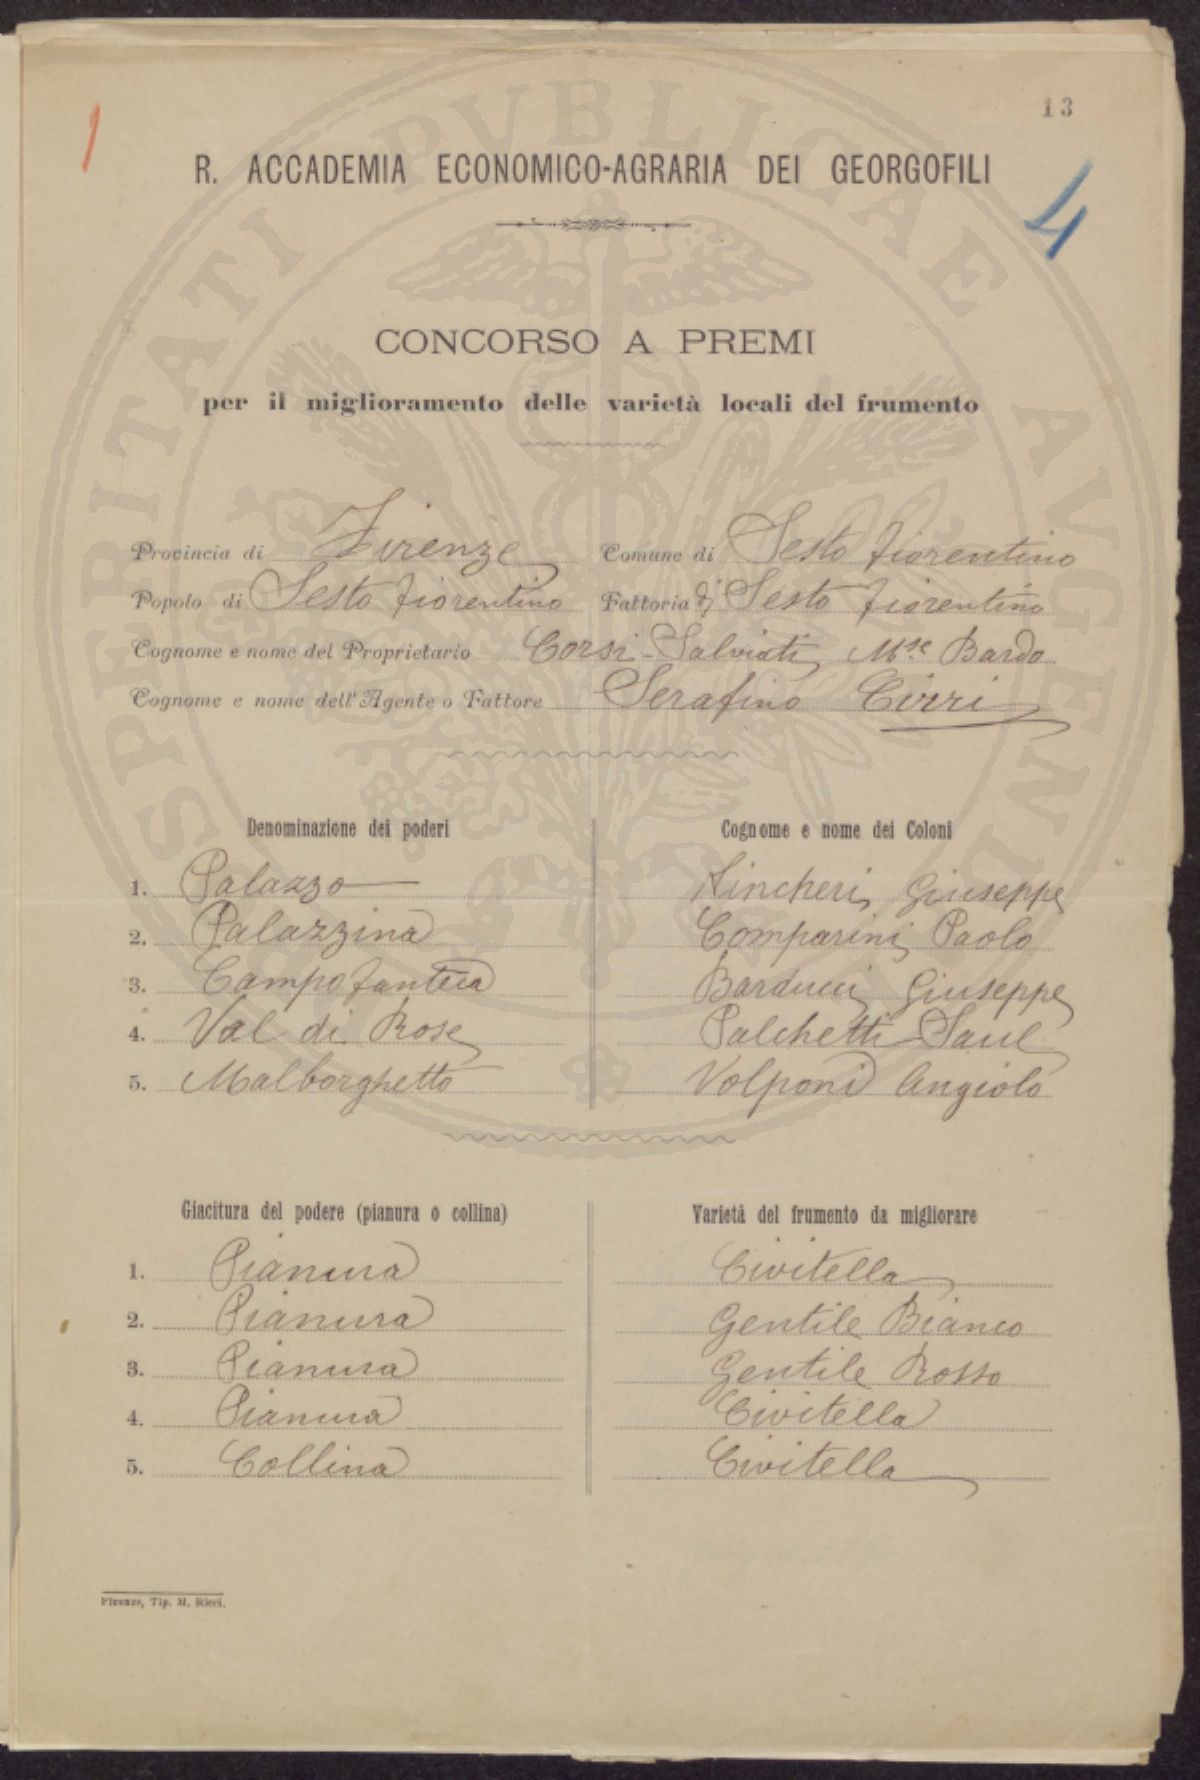 1
13
R. ACCADEMIA ECONOMICO-AGRARIA DEI GEORGOFILI
4
CONCORSO A PREMI
per il miglioramento delle varietà locali del frumento
Provincia di Firenze Comune di Sesto Fiorentino
Popolo di Sesto Fiorentino Fattoria di Sesto Fiorentino
Cognome e nome del Proprietario Corsi-Salviati Mse Bardo
Cognome e nome dell'Agente o Fattore Serafino Cirri
Denominazione dei poderi Cognome e nome dei Coloni
1. Palazzo Giuseppe
2. Palazzina Comparini Paolo
3. Barducci Giuseppe
4. Val di Rose Palchetti Saul
5. Malborghetto Volponi Angiolo
Giacitura del podere (pianura o collina) Varietà del frumento da migliorare
1. Pianura Civitella
2. Pianura Gentile Bianco
3. Pianura Gentile Rosso
4. Pianura Civitella
5. Collina Civitella
Firenze, Tip. M. Ricci.
PROSPERITATI PVBLICAE AVGENDAE